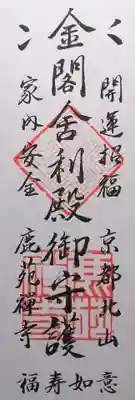 開運招福
京都北山
如意
金閣舎利殿御守護
家内安全
鹿苑禅寺
福寿